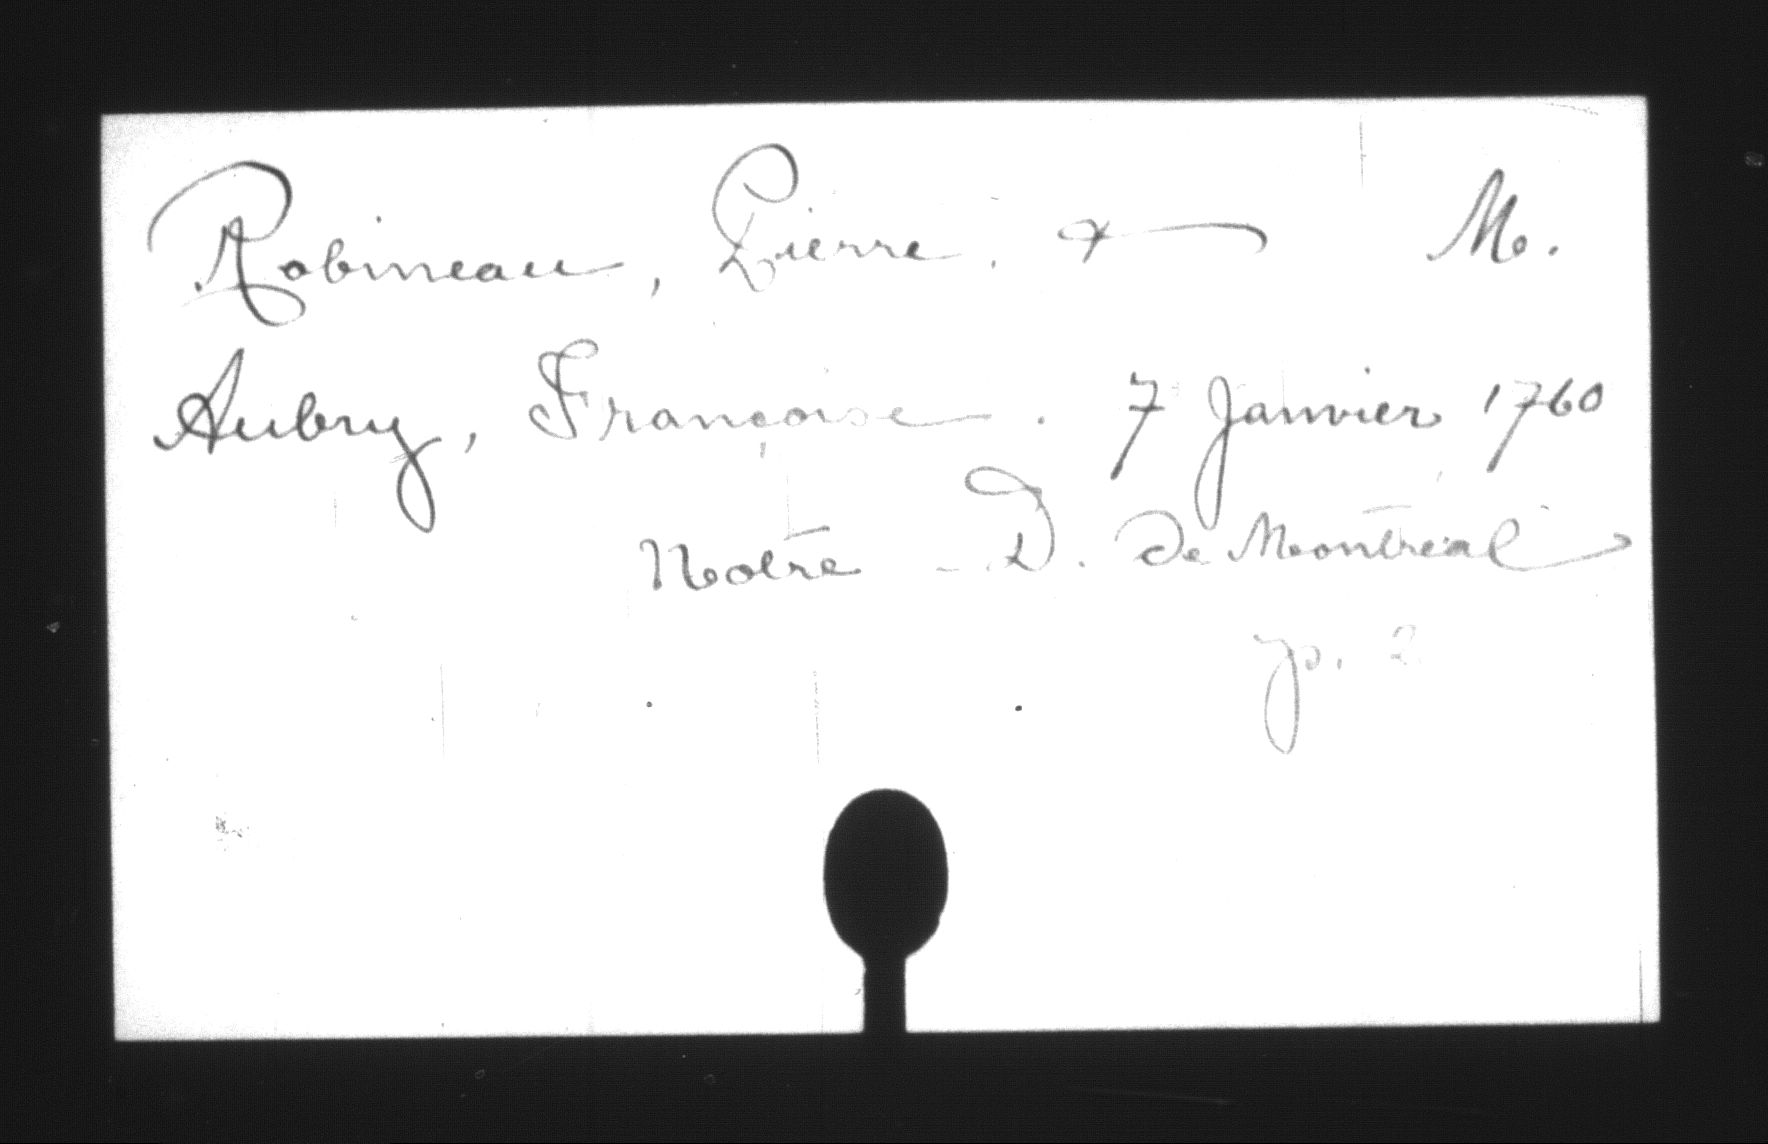 Robineau, Pierre. & M.
Aubry, Françoise. 7 Janvier 1760
Notre - D. de Montréal
p. 2